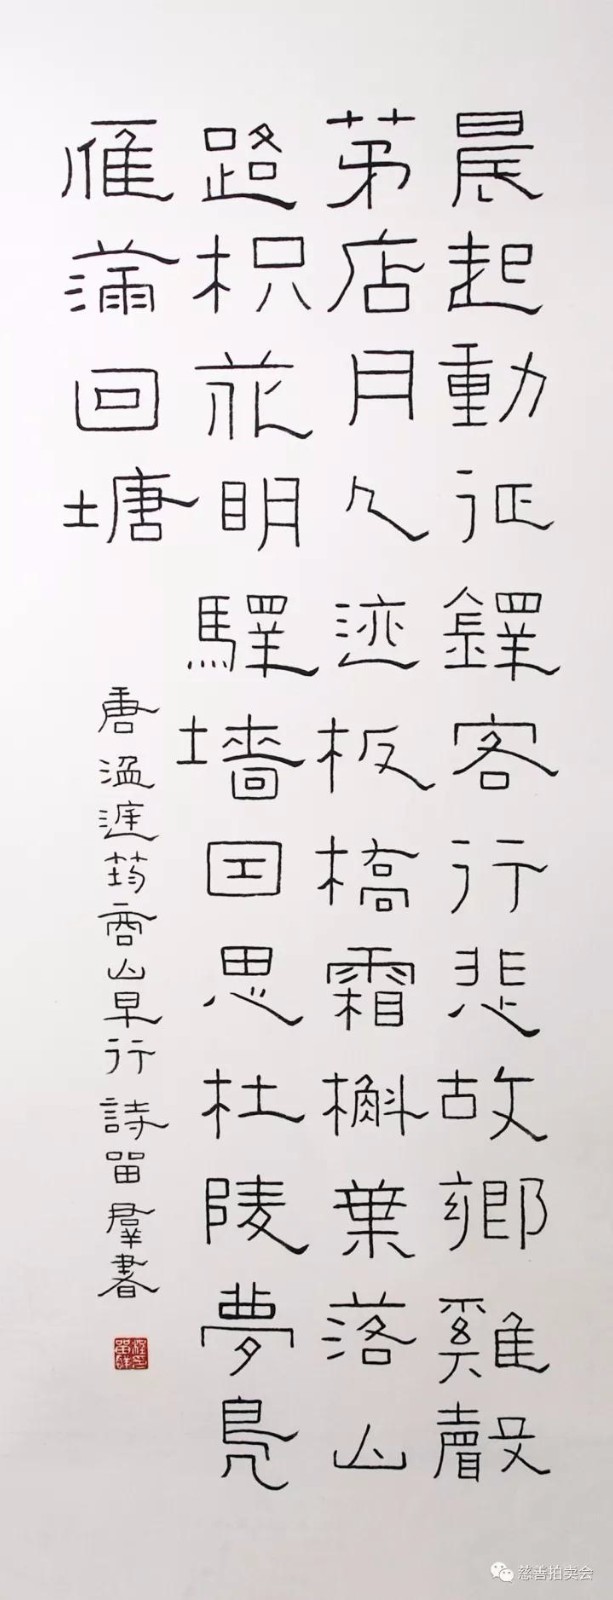 晨起動征鐸客行悲故鄉雞聲
茅店月人迹板橋霜槲葉落山
路枳花明驛墻因思杜陵夢鳧
雁滿回塘
唐溫庭筠商山早行詩留羣書
慈善拍卖会